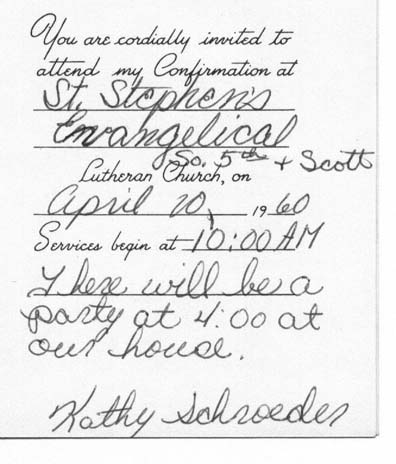 You are cordially invited to
attend my Confirmation at
St. Stephen's
Evangelical
So. 5th + Scott
Lutheran Church, on
April 10, 1960
Services begin at 10:00 AM
There will be a
party at 4:00 at
our house.
Kathy Schroeder